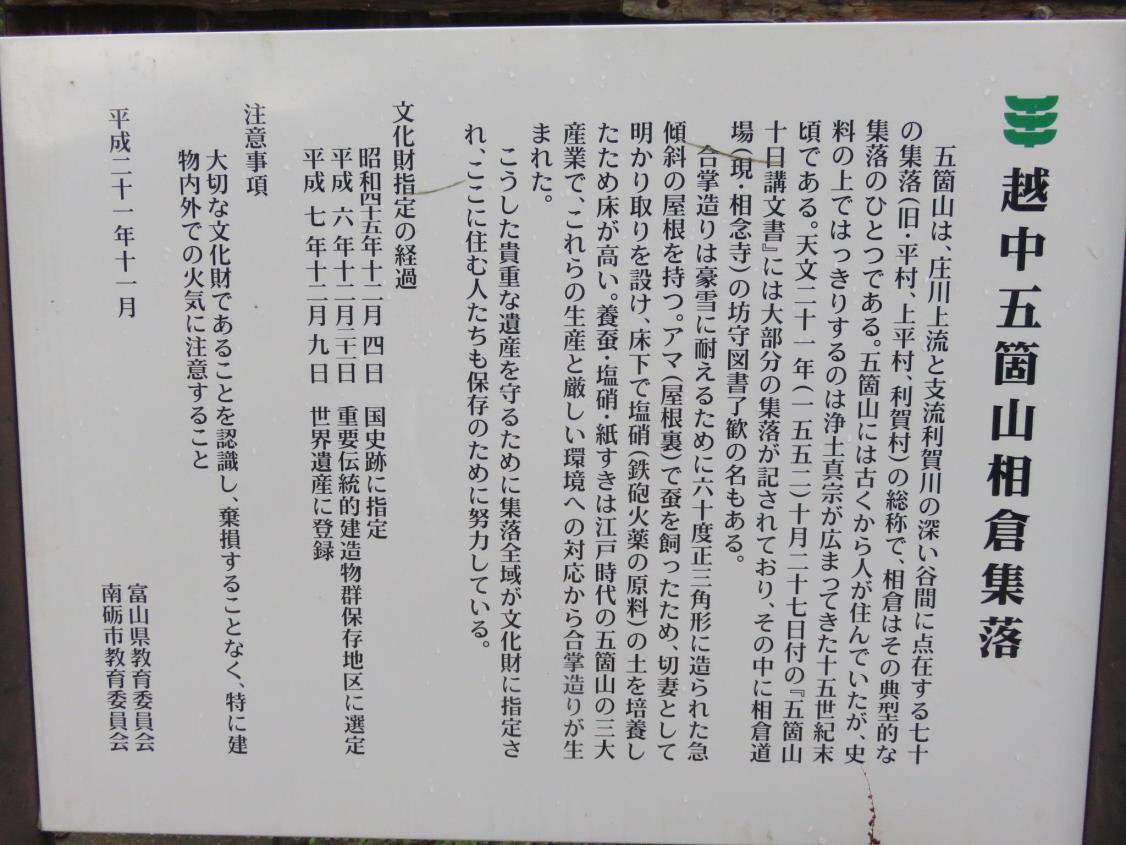 越中五箇山相倉集落
五箇山は、庄川上流と支流利賀川の深い谷間に点在する七十
の集落(旧・平村、上平村、利賀村)の総称で、相倉はその典型的な
集落のひとつである。五箇山には古くから人が住んでいたが、史
料の上ではっきりするのは浄土真宗が広まってきた十五世紀末
頃である。天文二十一年(一五五二)十月二十七日付の『五箇山
十日講文書』には大部分の集落が記されており、その中に相倉道
場(現・相念寺)の坊守図書了歓の名もある。
合掌造りは豪雪に耐えるために六十度正三角形に造られた急
傾斜の屋根を持つ。アマ(屋根裏)で蚕を飼ったため、切妻として
明かり取りを設け、床下で塩硝(鉄砲火薬の原料)の土を培養し
たため床が高い。養蚕・塩硝・紙すきは江戸時代の五箇山の三大
産業で、これらの生産と厳しい環境への対応から合掌造りが生
まれた。
こうした貴重な遺産を守るために集落全域が文化財に指定さ
れ、ここに住む人たちも保存のために努力している。
文化財指定の経過
昭和四十五年十二月 四日 国史跡に指定
平成 六年十二月二十一日 重要伝統的建造物群保存地区に選定
平成 七年十二月 九日 世界遺産に登録
注意事項
大切な文化財であることを認識し、棄損することなく、特に建
物内外での火気に注意すること
平成二十一年十一月
富山県教育委員会
南砺市教育委員会